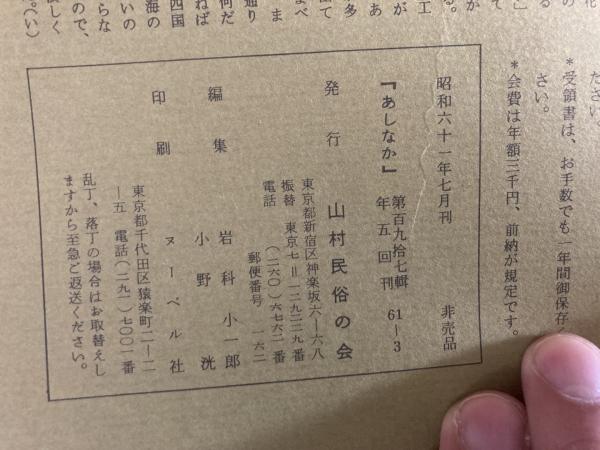 ださい。
*受領書は、お手数でも一年間御保存
さい。
*会費は年額三千円、前納が規定です。
昭和六十一年七月刊 非売品
『あしなか』 第百九拾七輯 61―3
年五回刊
発行 山村民俗の会
東京都新宿区神楽坂六―六八
振替 東京七=一二九二二九番
電話 (二六〇)六七六二番
郵便番号 一六二
編集 岩科小一郎
小野洸
印刷 ヌーベル社
東京都千代田区猿楽町二―二
―五 電話(二九一)七〇〇一番
乱丁、落丁の場合はお取替えし
ますから至急ご返送ください。